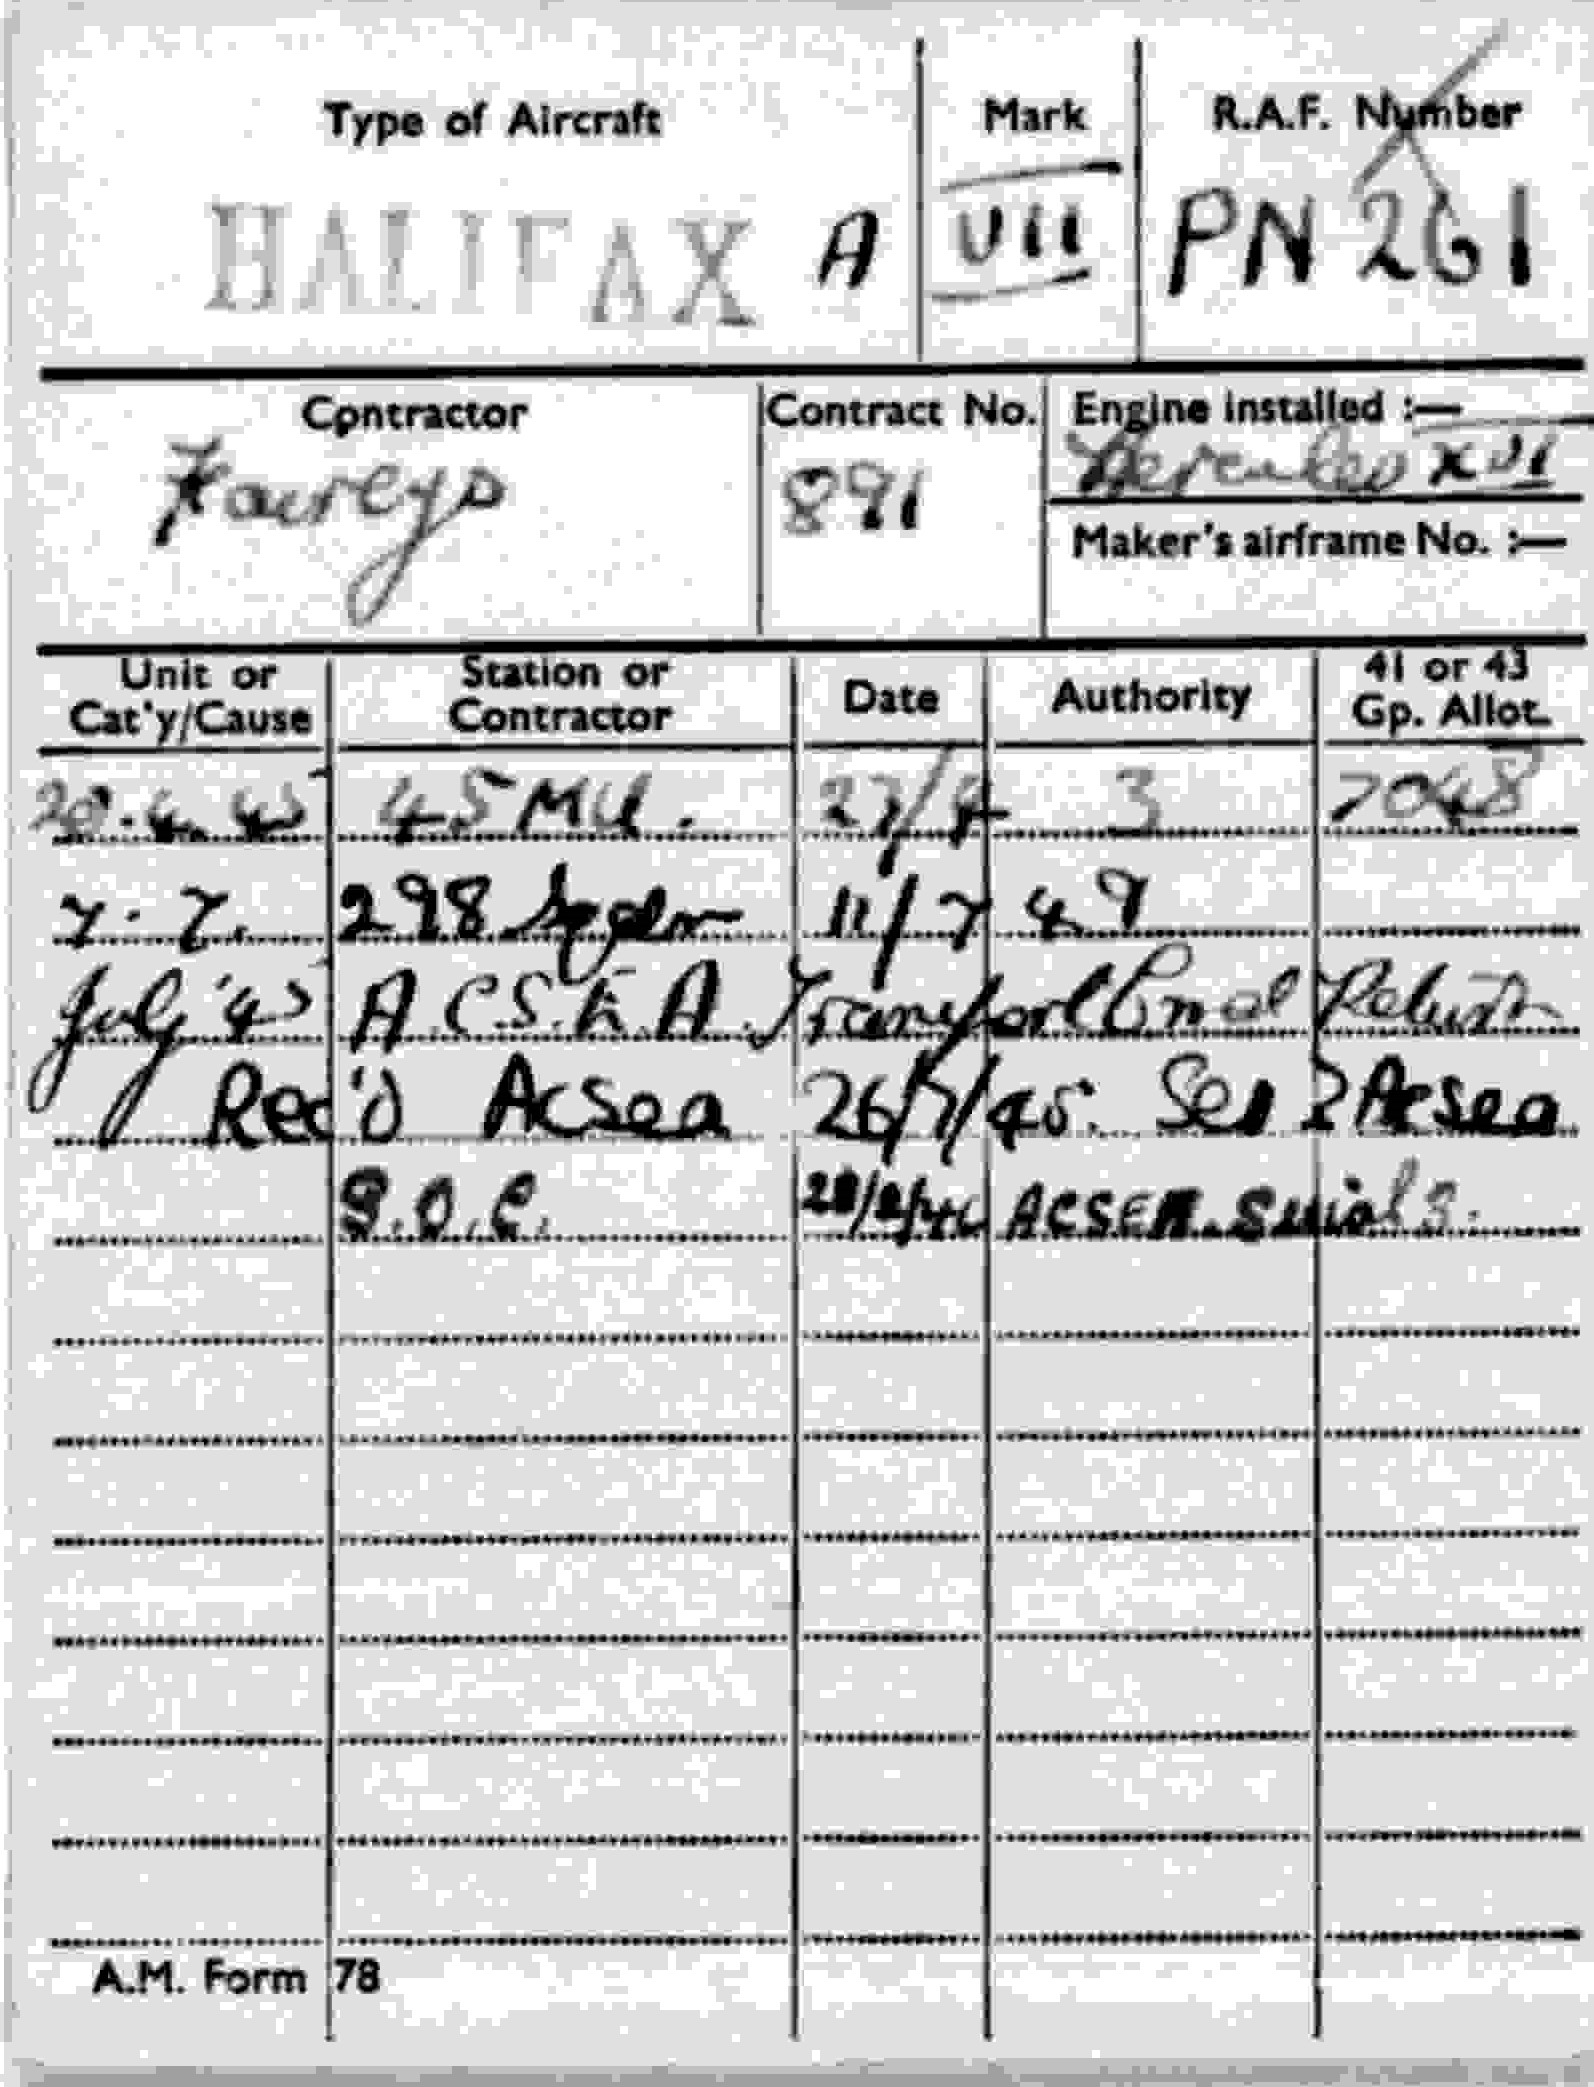 Type of Aircraft Mark R.A.F. Number
HALIFAX A VII PN 261
Contractor Contract No. Engine installed :—
Faireys 891 Hercules XVI
Maker's airframe No. :—
Unit or Cat'y/Cause Station or Contractor Date Authority 41 or 43 Gp. Allot.
28.4.45 45 MU. 27/4 3 7048
7.7. 298 Sqdn 11/7 49
July '45 A.C.S.E.A. Transport Cmd Return
Rec'd Acsea 26/7/45. Ser 2 Acsea
S.O.C. ACSEA. Serial 3.
A.M. Form 78